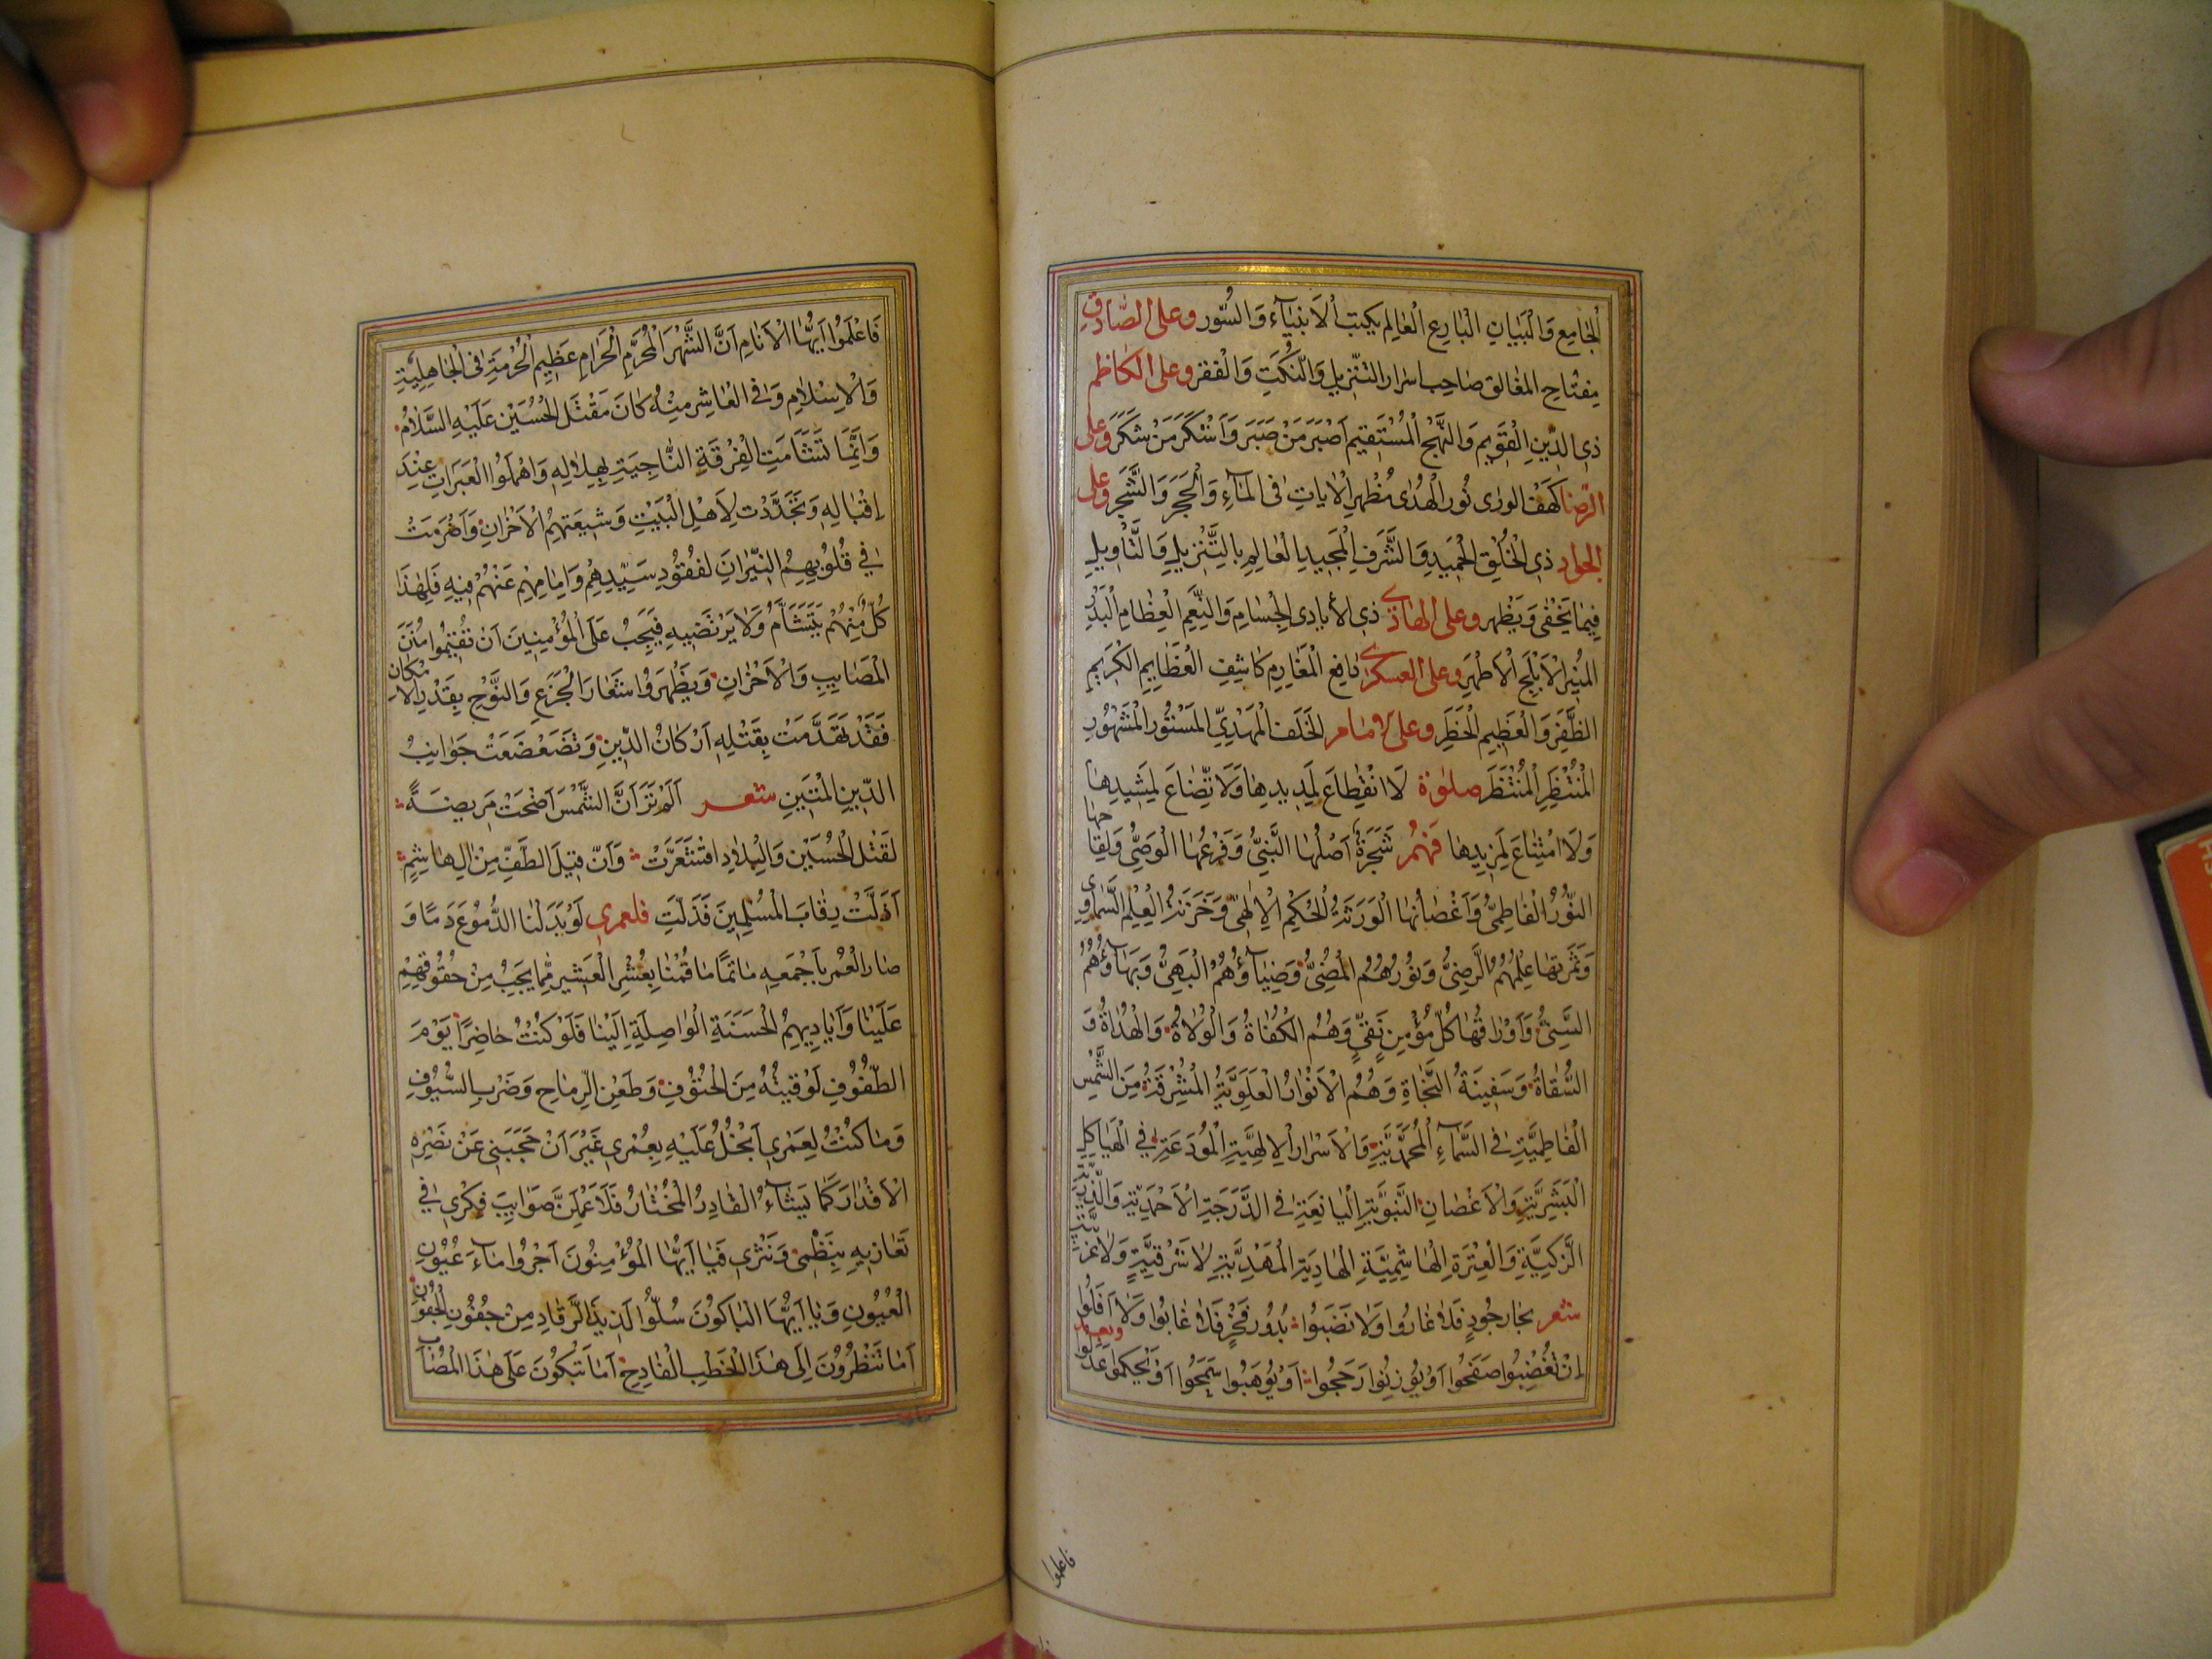 اَلْجامِعِ وَالْبَيانِ الْبارِعِ الْعالِمِ بِكُتُبِ الْاَنْبِيآءِ وَالسُّوَرِ وعلى الصّادقِ
مِفْتاحِ المَغالقِ صاحِبِ اسْرارِ التَّنْزيلِ وَالنُّكَتِ وَالْفِقَرِ وعلى الكاظم
ذِى الدّينِ الْقَوِيمِ وَالنَّهْجِ الْمُسْتَقِيمِ اَصْبَرَ مَنْ صَبَرَ وَاَشْكَرَ مَنْ شَكَرَ وعلى
الرّضا كَهْفِ الورٰى نُورِ الْهُدٰى مُظْهِرِ الْاٰياتِ فى الْمآءِ وَالْحَجَرِ وَالشَّجَرِ وعلى
الجواد ذِى الْخُلُقِ الْحَمِيدِ وَالشَّرَفِ الْمَجِيدِ الْعالِمِ بِالتَّنْزِيلِ وَالتَّاْوِيلِ
فِيما يَخْفٰى وَيَظْهر وعلى الهادى ذِى الأيادِى الْجِسامِ وَالنِّعَمِ الْعِظامِ الْبَدْرِ
المُنِيرِ الْاَبْلَجِ الْاَطْهَرِ وعلى العسكرى دافِعِ الْمَغارِمِ كاشِفِ الْعَظايِمِ الْكَرِيمِ
الظَّفَرِ وَالْعَظِيمِ الْخَطَرِ وعلى الامام الخَلَفِ الْمَهْدِيِّ المَسْتُورِ الْمَشْهُورِ
الْمُنْتَظِرِ الْمُنْتَظَرِ صلوة لَا انْقِطاعَ لِمَدِيدِها وَلَا تِّضاعَ لِمَشِيدِها
وَلَا امْتِناعَ لِمَزِيدِها فَهُمْ شَجَرَةٌ اَصْلُهَا النَّبِيُّ وَفَرْعُهَا الْوَصِيُّ وَلِقاحها
النُّورُ الْفاطِمِيُّ وَاَغْصانُهَا الْوَرَثَةُ لِلْحُكْمِ الْاِلٰهِيِّ وَخَزَنَةُ الْعِلْمِ السَّماوى
وَثَمَرَتُها عِلْمُهُمُ الرَّضِيُّ وَنُورُهُمُ الْمُضِيُّ وَضِيآؤُهُمُ الْبَهِيُّ وَبَهآؤُهُمُ
السَّنِيُّ وَاَوْراقُها كُلُّ مُؤْمِنٍ تَقِيٍّ وَهُمُ الْكُفاةُ وَالْوُلاةُ وَالْهُداةُ وَ
السُّقاةُ وَسَفِينَةُ النَّجاةِ وَهُمُ الْاَنْوارُ الْعَلَوِيَّةُ الْمُشْرِقَةُ مِنَ الشَّمْسِ
الْفاطِمِيَّةِ فى السَّمآءِ الْمُحَمَّدِيَّةِ وَالْاَسْرارُ الْاِلٰهِيَّةُ الْمُودَعَةِ فِى الْهَياكِلِ
الْبَشَرِيَّةِ وَالْاَغْصانِ النَّبَوِيَّةِ الْيانِعَةِ فى الدَّرَجَةِ الْاَحْمَدِيَّةِ وَالذُّرِّيَّةِ
الزَّكِيَّةِ وَالْعِتْرَةِ الْهاشِمِيَّةِ الْهادِيَةِ الْمَهْدِيَّةِ لا شَرْقِيَّةٍ وَلا غَرْبِيَّةٍ
شعر بحار جُودٍ فَلا غارُوا وَلا نَضَبُوا بُدُور فَخْرٍ فَلا غابُوا وَلا اَفَلُوا
اِنْ تُغْضِبُوا صَفَحُوا اَوْ يُوزِنُوا رَجَحُوا اَوْ يُوهَبُوا سَمَحُوا اَوْ يَحْكُموا عَدَلُوا وبعد
فاعلموا
فَاعْلَمُوا اَيُّهَا الْاَنامِ اَنَّ الشَّهْرَ الْمُحَرَّمِ الْحَرامِ عَظِيمِ الْحُرْمَةِ فى الْجاهِلِيَّةِ
وَالْاِسْلامِ وَفى العاشِرِ مِنْهُ كانَ مَقْتَلِ الْحُسَيْنِ عَلَيْهِ السَّلامُ
وَاِنَّما تَتَشَامَتِ الْفِرْقَةِ النّاجِيَةِ بِهِلالِهِ وَاهْمَلُوا الْعَبَراتِ عِنْدَ
اِقْبالِهِ وَتَجَدَّدَتْ لِاَهْلِ الْبَيْتِ وَشِيعَتِهِمُ الْاَحْزانِ وَاَضْرَمَتْ
فِى قُلُوبِهِمُ النِّيرانِ لفقُودِ سَيِّدِهِمْ وَاِمامِهِم عَنْهُمْ فِيهِ فَلِهٰذا
كُلٌّ مِنْهُمْ يَتَشَأَّمُ وَلا يَرْتَضِيهِ فَيَجِبُ عَلَى الْمُؤْمِنِينَ اَنْ تُقِيمُوا سُنَنَ
الْمَصايِبِ وَالْاَحْزانِ وَيظْهَرَوْا شَعارَ الْجَزَعِ وَالنَّوْحِ بِقَدْرِ الامكان
فَقَدْ تَقَدَّمَتْ بِقَتْلِهِ اَرْكانُ الدّينِ وَتَضَعْضَعَتْ جَوانِبُ
الدّينِ الْمَتِينِ شعر اَلَمْ تَرَ اَنَّ الشَّمْسَ اَضْحَتْ مَريضَةً
لِقَتْلِ الْحُسَيْنِ وَالْبِلادِ اقْشَعَرَّتْ وَاِنَّ قتِيلَ الطَّفِّ مِنْ اٰلِ هاشِمٍ
اَذَلَّتْ رِقابَ الْمُسْلِمِينَ فَذَلَّتِ فلعمرى لَوْ بَدَلْنَا الدُّمُوعَ دَمًا وَ
صارَ الْعُمْر بِاَجْمَعِهِ مَاتمًا ما قُمْنا بِعُشْرِ الْعَشِيرِ مِمّا يَجِبُ مِنْ حُقُوقِهِمْ
عَلَيْنا وَاَيادِيهِمُ الْحَسَنَةِ الْواصِلَةِ اِلَيْنا فَلَوْ كُنْتُ حاضِرًا يَوْمَ
الطُّفُوفِ لَوَقيتُهُ مِنَ الْحُتُوفِ وَطَعْنِ الرِّماحِ وَضَرْبِ السُّيُوفِ
وَما كنتُ لِعَمْرِى اَبْخُلُ عَلَيْهِ بِعُمْرى غَيْرَ اَنْ حَجَبَنِى عَنْ نَصْرِهِ
الْاَقْدارَ كَما يَشآءُ الْقادِرُ الْمُخْتارُ فَلَاَعْمِلَنَّ صَوايِبَ فِكْرِى فى
تَعازِيهِ بِنَظْمِى وَنَثْرِى فَيا اَيُّهَا الْمُؤْمِنُونَ اَجْرُوا مآءَ عُيُونِ
الْعُيُونِ وَيا اَيُّهَا الْباكُونَ سُلُّوا لَذِيذَ الرُّقادِ مِنْ جُفُونِ الْجُفُونِ
اَما تَنْظُرُونَ اِلٰى هٰذَا الْخَطْبِ الْفادِحِ اَما تَبْكُونَ عَلٰى هٰذَا الْمُصابِ